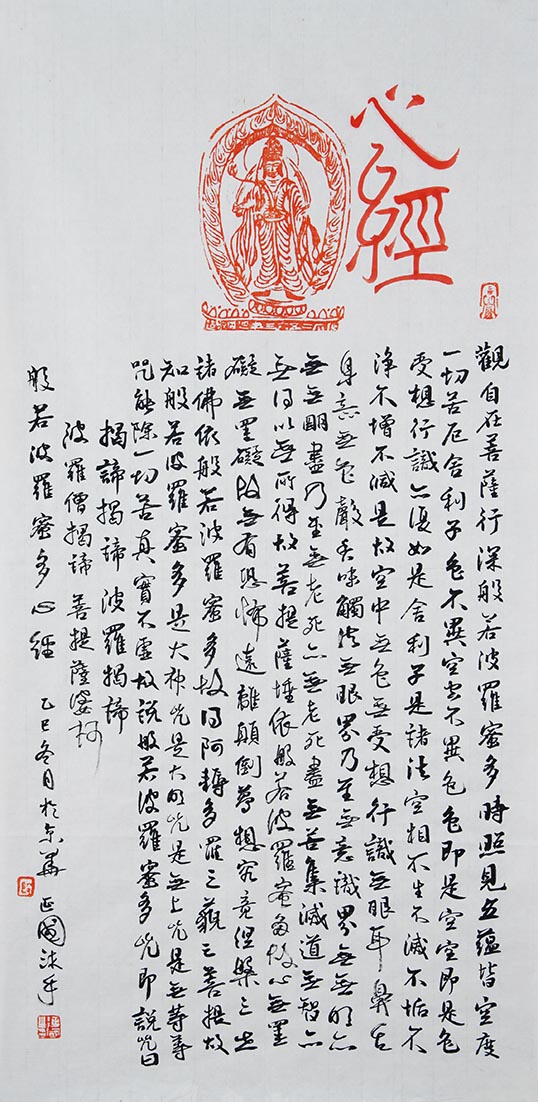 心經
觀自在菩薩行深般若波羅蜜多時照見五蘊皆空度
一切苦厄舍利子色不異空空不異色色即是空空即是色
受想行識亦復如是舍利子是諸法空相不生不滅不垢不
淨不增不減是故空中無色無受想行識無眼耳鼻舌
身意無色聲香味觸法無眼界乃至無意識界無無明亦
無無明盡乃至無老死亦無老死盡無苦集滅道無智亦
無得以無所得故菩提薩埵依般若波羅蜜多故心無罣
礙無罣礙故無有恐怖遠離顛倒夢想究竟涅槃三世
諸佛依般若波羅蜜多故得阿耨多羅三藐三菩提故
知般若波羅蜜多是大神咒是大明咒是無上咒是無等等
咒能除一切苦真實不虛故說般若波羅蜜多咒即說咒曰
揭諦揭諦波羅揭諦
波羅僧揭諦菩提薩婆訶
般若波羅蜜多心經 乙巳冬月於京華 正國沐手